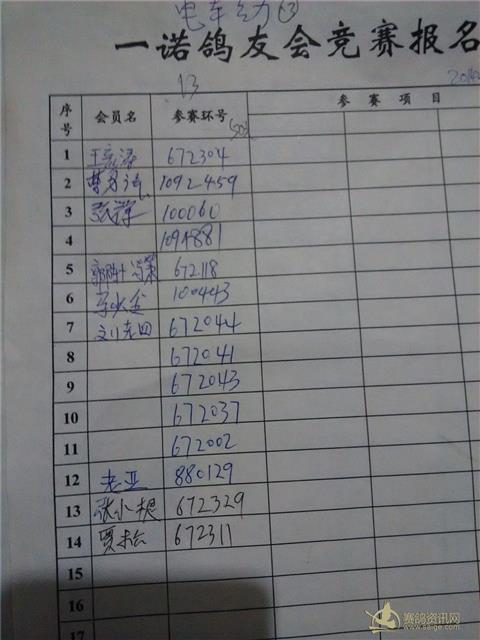 电车合力 ⑬
一诺鸽友会竞赛报名
13
序号 会员名 参赛环号 参赛项目
1 672304
2 1092459
3 张辉 100060
4 1091881
5 672118
6 100443
7 刘老四 672044
8 672041
9 672043
10 672037
11 672002
12 老亚 880129
13 张小根 672329
14 贾松 672311
15
16
17
赛鸽资讯网
www.saige.com